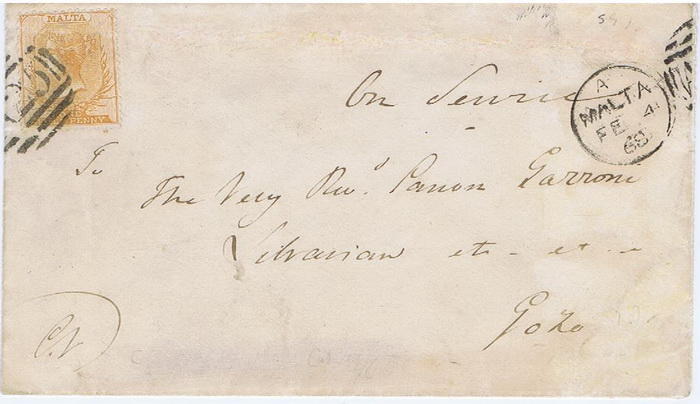 MALTA
PENNY
On Service
A
MALTA
FE 4
68
To
The Very Revd. Canon Garroni
Librarian etc - etc -
Gozo